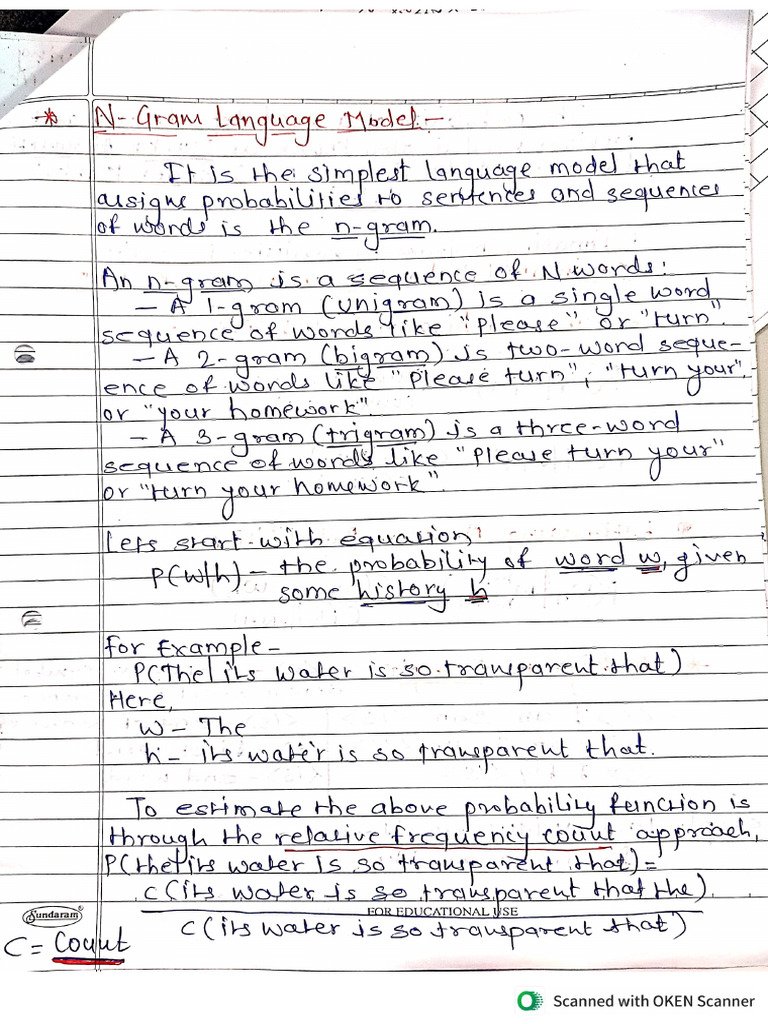 * N-Gram Language Model:-
It is the simplest language model that
assigns probabilities to sentences and sequences
of words is the n-gram.
An n-gram is a sequence of N words:
- A 1-gram (unigram) is a single word
sequence of words like "please" or "turn".
- A 2-gram (bigram) is two-word seque-
ence of words like "Please turn", "turn your",
or "your homework".
- A 3-gram (trigram) is a three-word
sequence of words like "Please turn your"
or "turn your homework".
Lets start with equation:
P(w|h) - the probability of word w, given
some history h
for Example -
P(The| its water is so transparent that)
Here,
w - The
h - its water is so transparent that.
To estimate the above probability function is
through the relative frequency count approach,
P(the|its water is so transparent that) =
c(its water is so transparent that the)
Sundaram® FOR EDUCATIONAL USE
c(its water is so transparent that)
C = Count
Scanned with OKEN Scanner